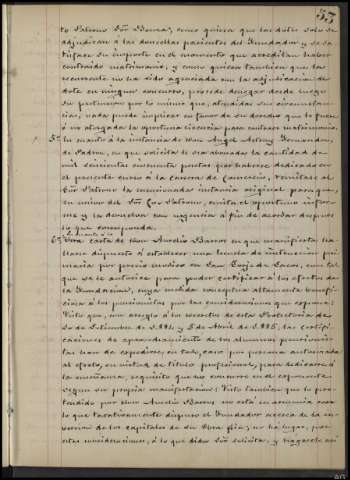 53
to Patrono Sor Baena, como quiera que las dotes solo se
adjudican á las doncellas parientes del Fundador y se sa
tisface su importe en el momento que acreditan haber
contraido matrimonio, y como quiera tambien que la
recurrente no ha sido agraciada con la adjudicacion de
dote en ningun concurso, procede denegar desde luego
su pretension por lo mismo que, atendidas sus circunstan
cias, nada puede implicar en favor de su derecho que le fuera
ó no otorgada la oportuna licencia para contraer matrimonio.
5º En cuanto á la instancia de Don Angel Fernandez,
de Padron, en que solicita le sea abonada la cantidad de
mil seiscientas cincuenta pesetas por haberse dedicado en
el presente curso á la carrera de Comercio, remitase al
Sor Patrono la mencionada instancia original para que,
en union del Sor Patrono, emita el oportuno infor-
me y la devuelva con urgencia á fin de acordar despues
lo que corresponda.
6º Vista carta de Don Aurelio Baeros en que manifiesta ha
llarse dispuesto á establecer una escuela de instruccion pri
maria por precio módico en San, con tal
que se le autorice para poder certificar á los efectos de
la Fundacion, cuya medida conceptua altamente benefi-
ciosa á los pensionistas por las consideraciones que expone:
Visto que, con arreglo á los acuerdos de este Protectorado de
30 de Setiembre de 1884 y 8 de Abril de 1885, las certifi
caciones de aprovechamiento de los alumnos pensionis-
tas han de expedirse, en todo caso por persona autorizada
al efecto, en virtud de titulo profesional, para dedicarse á
la enseñanza, requisito que no concurre en el exponente
segun su propia manifestacion: Visto tambien que lo pre-
tendido por Don Aurelio Baeros no está en armonia con
lo que taxativamente dispuso el Fundador acerca de la in-
version de los capitales de su Obra pia; no há lugar, por
estas consideraciones, á lo que dicho Sor solicita, y hágasele asi